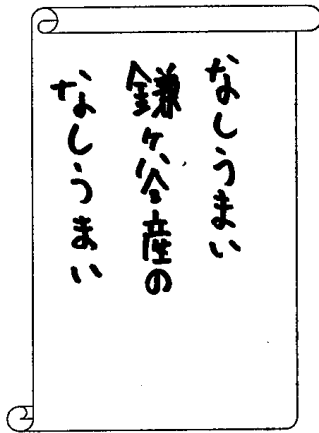 なしうまい
鎌ヶ谷産の
なしうまい